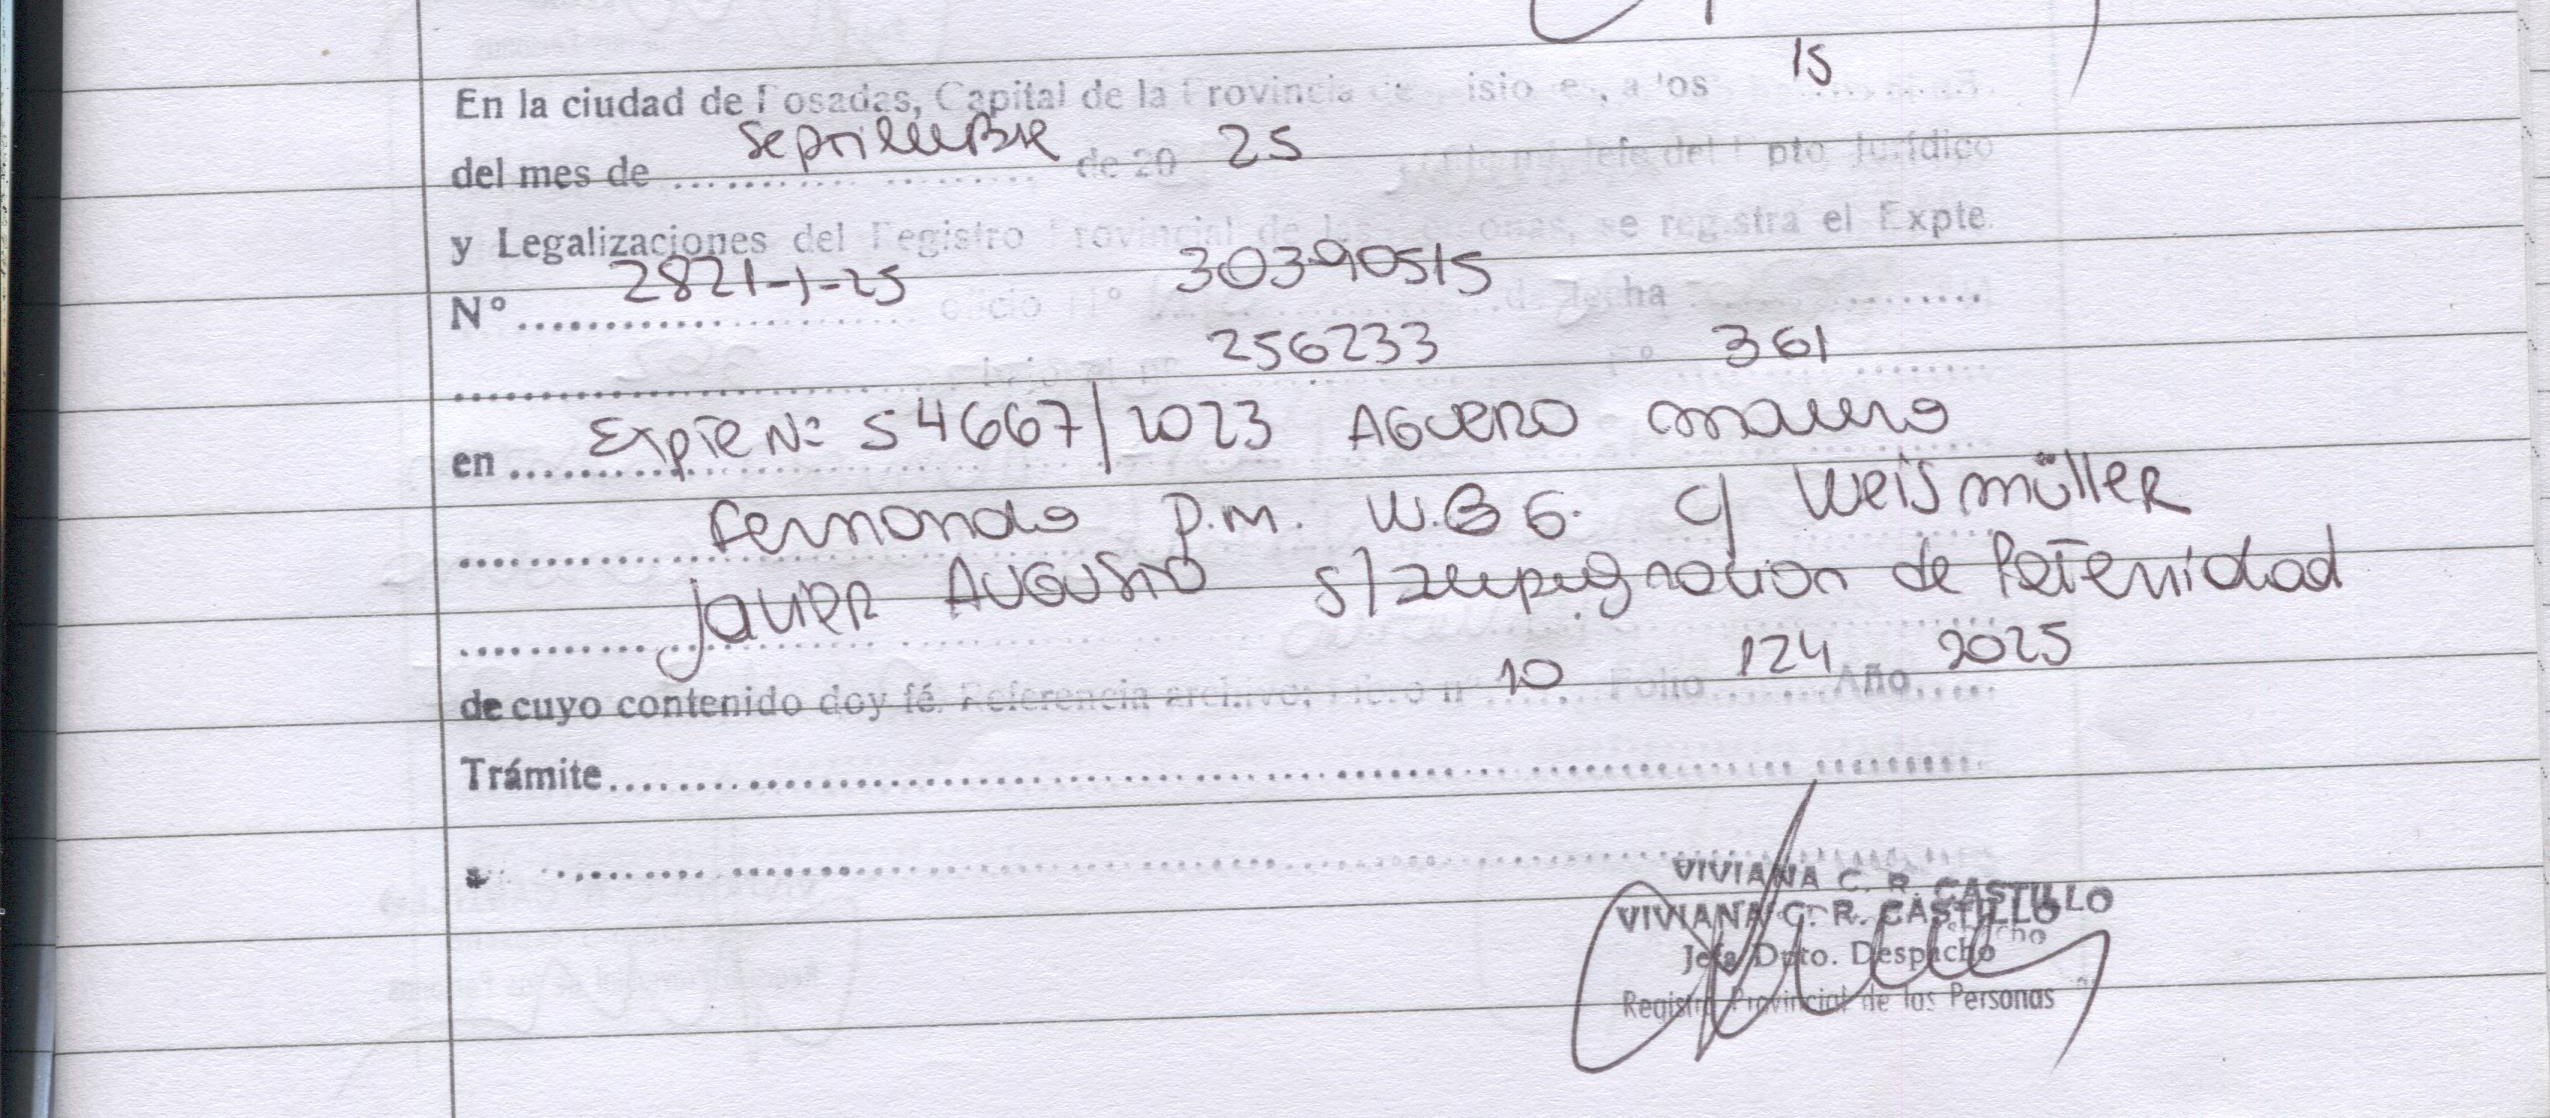 15
En la ciudad de Posadas, Capital de la Provincia de Misiones, a los
Septiembre 25
del mes de .................... de 20 Jefe del Dpto Jurídico
y Legalizaciones del Registro Provincial de las Personas, se registra el Expte.
2821-J-25 30390515
N° .................... oficio N° de fecha ..........
256233 361
en Expte N: 54667/2023 AGUERO mauro
Fernando P.M. W.B G. c/ Weismüller
Javier AUGUSTO s/ Impugnacion de Paternidad
10 124 2025
de cuyo contenido doy fé. Referencia archivo: Libro n° ...... Folio ...... Año ....
Trámite ........................................
VIVIANA C. R. CASTILLO
VIVIANA C. R. CASTILLO
Jefa Dpto. Despacho
Registro Provincial de las Personas